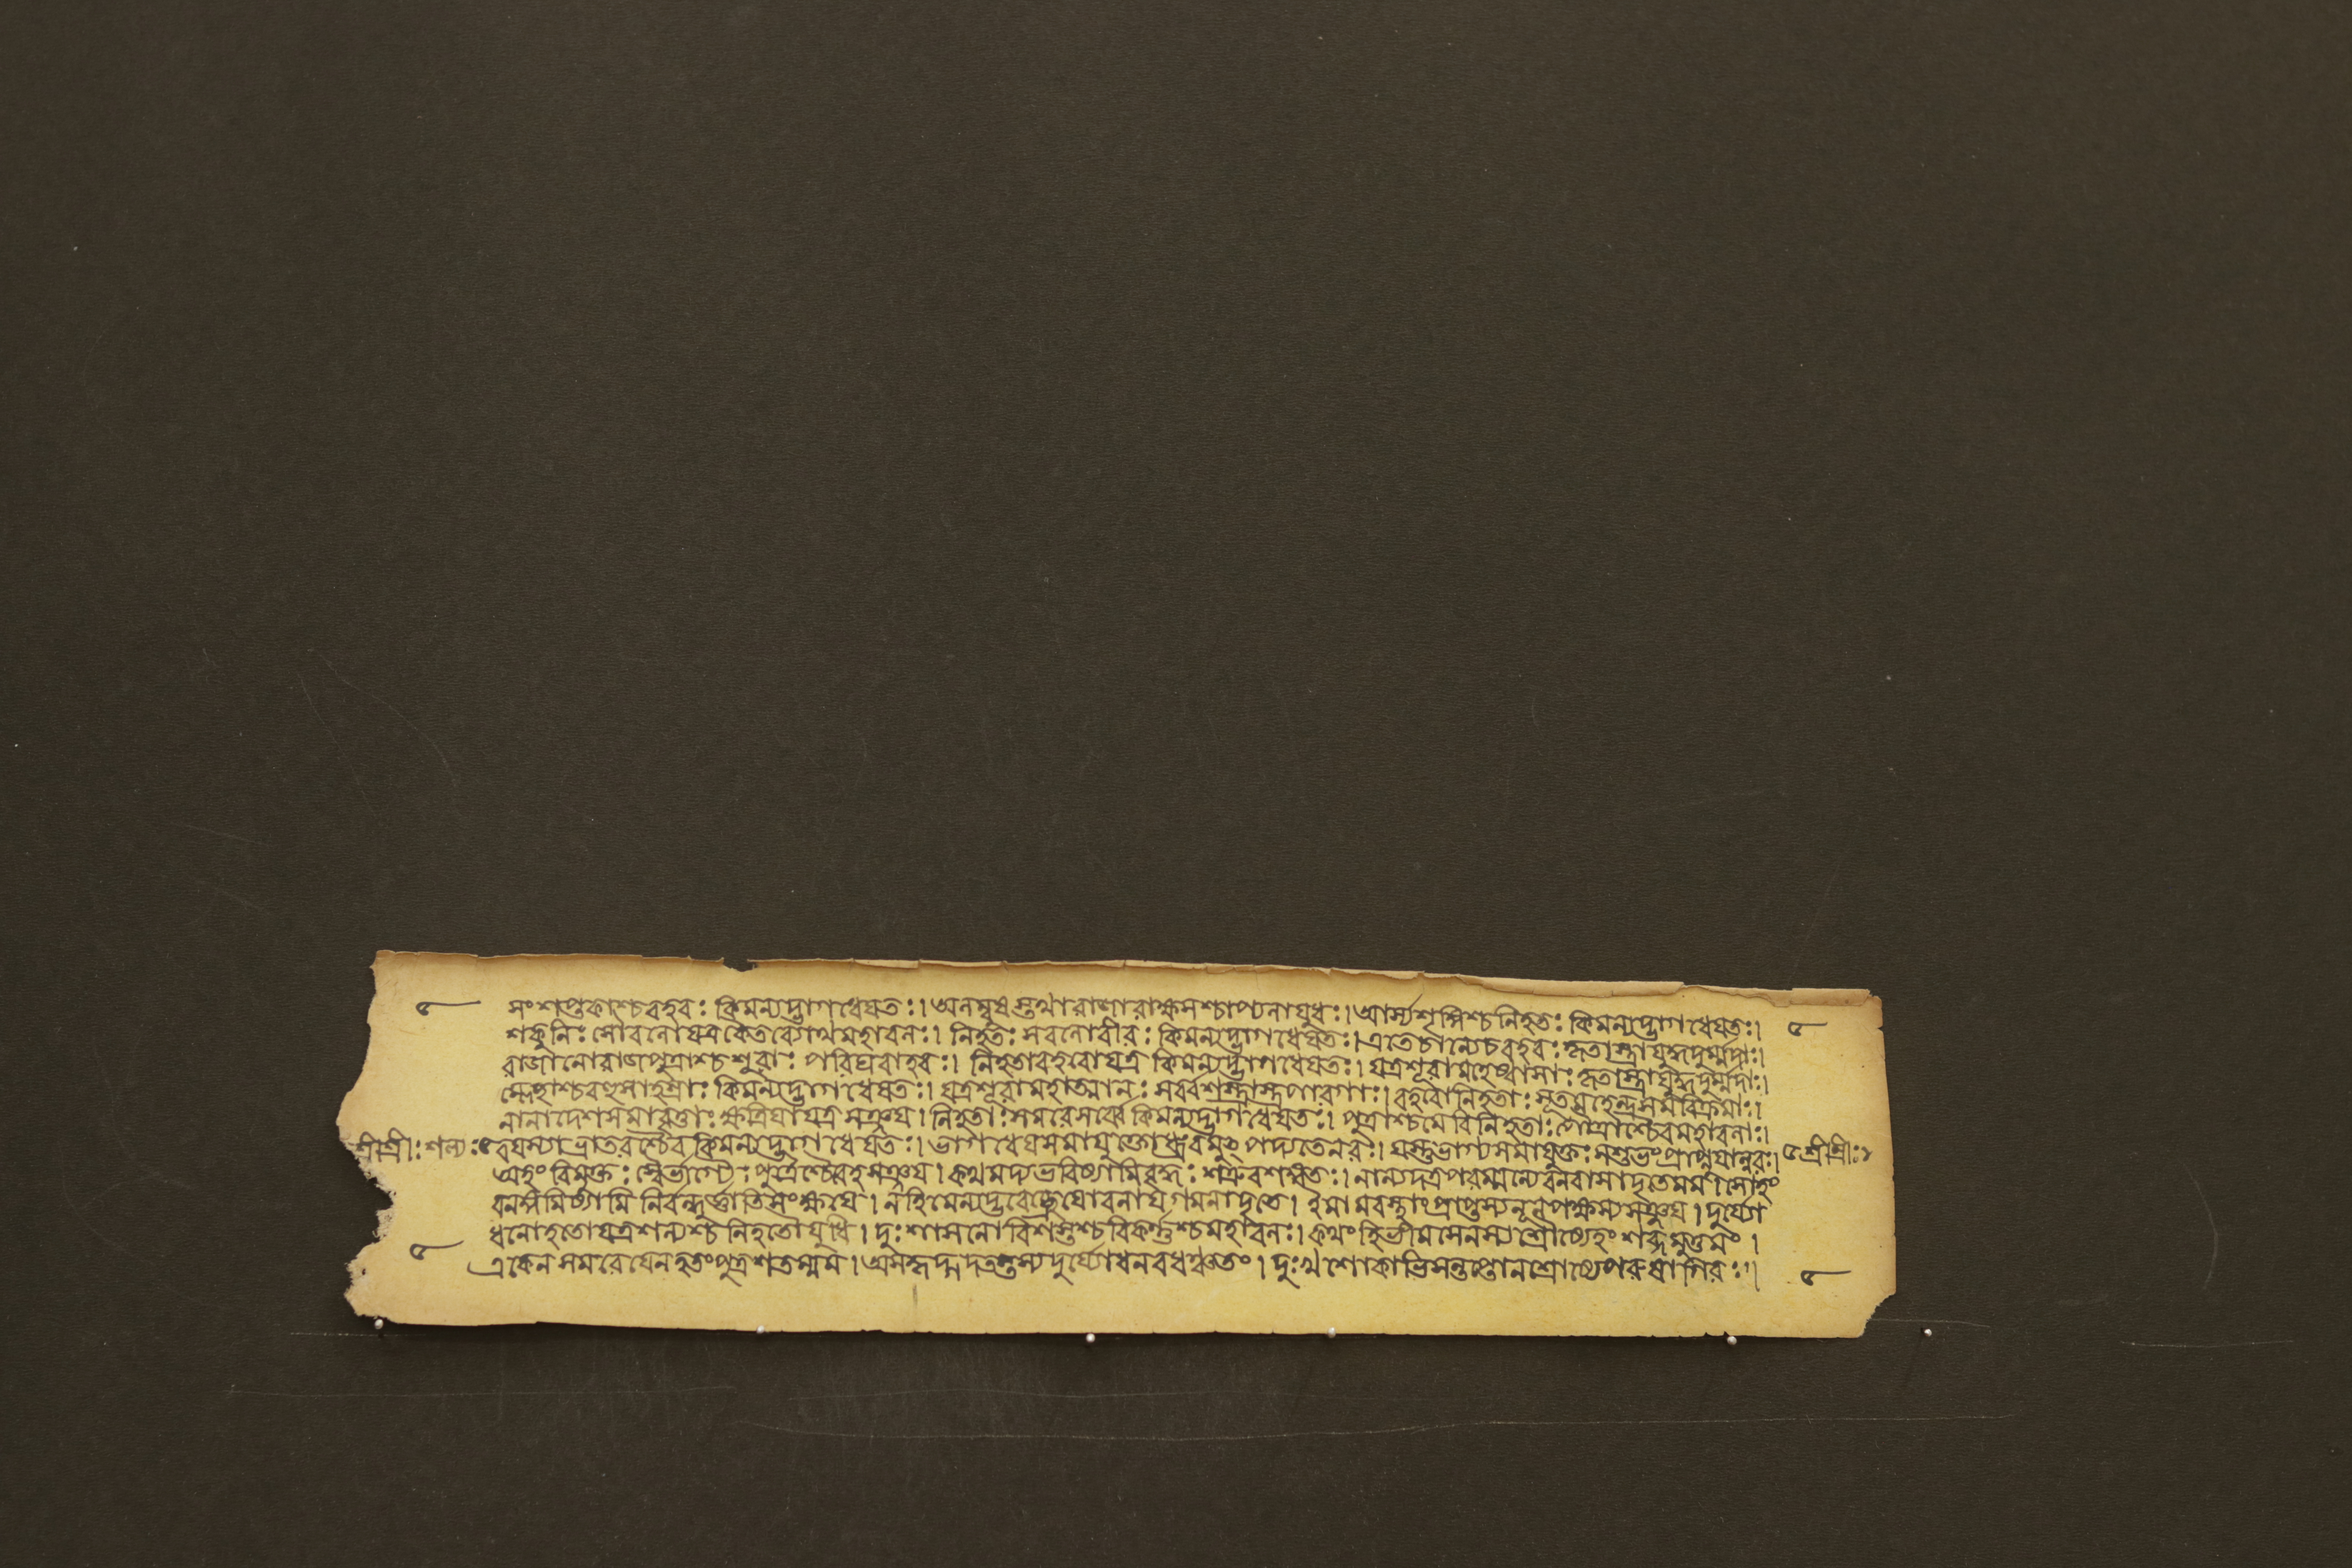 সংশপ্তকাশ্চবহবঃ কিমন্যদ্ভাগধেয়তঃ। অলম্বুষস্তথারাজারাক্ষসশ্চাপ্যলাযুধঃ। আর্স্যশৃঙ্গিশ্চনিহতঃ কিমন্যদ্ভাগধেয়তঃ।
শকুনিঃ সৌবলোযত্রকৈতব্যোথমহাবলঃ। নিহতঃ সবলোবীরঃ কিমন্যদ্ভাগধেয়তঃ। এতেচান্যেচবহবঃ কৃতাস্ত্রাযুদ্ধদুর্ম্মদাঃ।
রাজানোরাজপুত্রাশ্চশূরাঃ পরিঘবাহবঃ। নিহতাবহবোযত্র কিমন্যদ্ভাগধেয়তঃ। যত্রশূরামহেষ্বাসাঃ কৃতাস্ত্রাযুদ্ধদুর্ম্মদাঃ।
ম্লেচ্ছাশ্চবহুসাহস্রাঃ কিমন্যদ্ভাগধেয়তঃ। যত্রশূরামহাত্মানঃ সর্ব্বশস্ত্রাস্ত্রপারগাঃ। বহবোনিহতাঃ সূতমহেন্দ্রসমবিক্রমাঃ।
নানাদেশসমাবৃত্তাঃ ক্ষত্রিয়াযত্রসঞ্জয়। নিহতাঃ সমরেসর্ব্বে কিমন্যদ্ভাগধেয়তঃ। পুত্রাশ্চমেবিনিহতাঃ পৌত্রাশ্চৈবমহাবলাঃ।
শ্রীশ্রীঃ শল্যঃ ৫ বয়স্যাভ্রাতরশ্চৈব কিমন্যদ্ভাগধেয়তঃ। ভাগধেয়সমাযুক্তোধ্রুবমুৎপদ্যতেনরঃ। যস্তুভাগ্যসমাযুক্তঃ সশুভংপ্রাপ্নুয়ান্নরঃ। ৫ শ্রীশ্রীঃ
অহংবিমুক্তঃ স্বৈর্ভাগ্যৈঃ পুত্রৈশ্চৈবেহসঞ্জয়। কথমদ্যভবিষ্যামিবৃদ্ধঃ শত্রুবশঙ্গতঃ। নান্যদত্রপরম্মন্যেবনবাসাদৃতেমম। সোহং
বনঙ্গমিষ্যামি নির্বন্ধুর্জ্ঞাতিসংক্ষয়ে। নহিমেন্যদ্ভবেচ্ছ্রেয়োবনাযগমনাদৃতে। ইমামবস্থাংপ্রাপ্তস্যলূনপক্ষস্যসঞ্জয়। দুর্য্যো
ধনোহতোযত্রশল্যশ্চনিহতোযুধি। দুঃশাসনোবিশস্তশ্চবিকর্ণশ্চমহাবলঃ। কথংহিভীমসেনস্যশ্রোষ্যেহংশব্দমুত্তমং।
একেনসমরেযেনহতংপুত্রশতম্মম। অসকৃদ্বদতস্তস্যদুর্য্যোধনবধ দুঃখশোকাভিসন্তপ্তোনশ্রোষ্যেপরুষাগিরঃ।